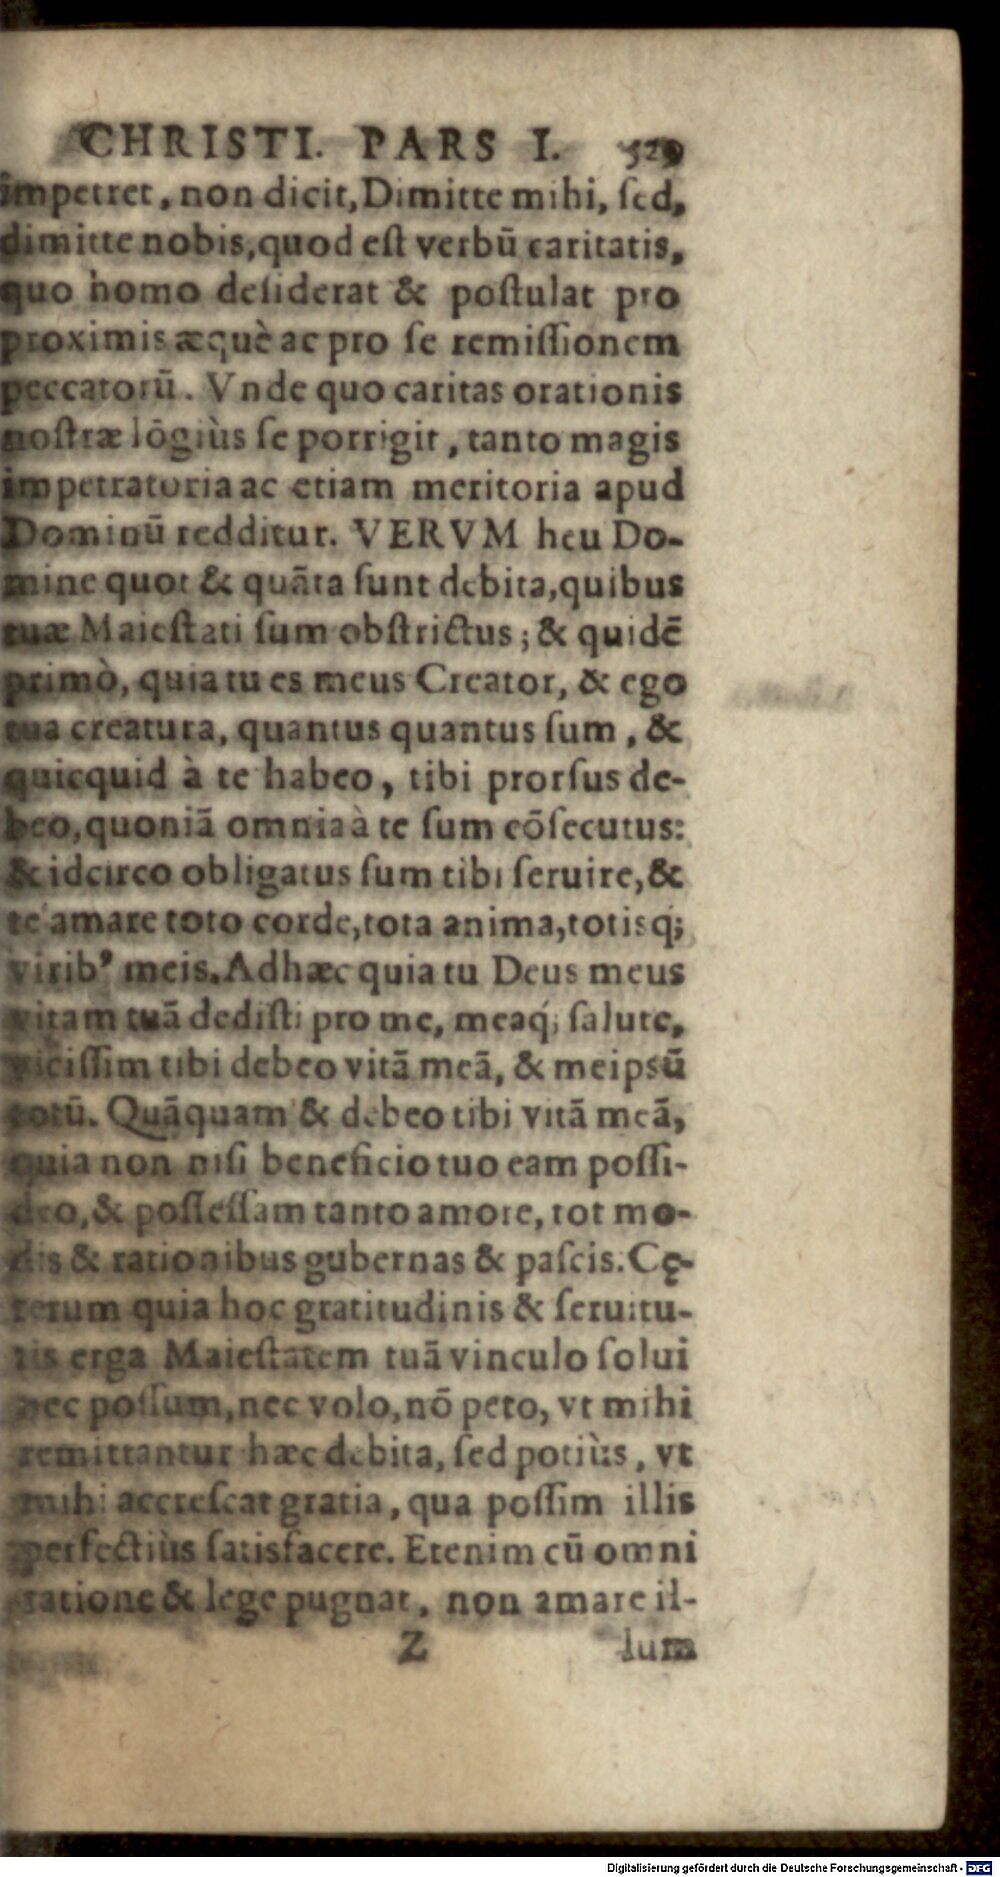 CHRISTI. PARS I. 529
impetret, non dicit, Dimitte mihi, ſed,
dimitte nobis, quod eſt verbū caritatis,
quo homo deſiderat & poſtulat pro
proximis æquè ac pro ſe remiſſionem
peccatorū. Vnde quo caritas orationis
noſtræ lōgiùs ſe porrigit, tanto magis
impetratoria ac etiam meritoria apud
Dominū redditur. VERVM heu Do-
mine quot & quāta ſunt debita, quibus
tuæ Maieſtati ſum obſtrictus; & quidē
primò, quia tu es meus Creator, & ego
tua creatura, quantus quantus ſum, &
quicquid à te habeo, tibi prorſus de-
beo, quoniā omnia à te ſum cōſecutus:
& idcirco obligatus ſum tibi ſeruire, &
te amare toto corde, tota anima, totisq́;
virib⁹ meis. Adhæc quia tu Deus meus
vitam tuā dediſti pro me, meaq́; ſalute,
viciſſim tibi debeo vitā meā, & meipsū
totū. Quāquam & debeo tibi vitā meā,
quia non niſi beneficio tuo eam poſſi-
deo, & poſſeſſam tanto amore, tot mo-
dis & rationibus gubernas & paſcis. Cę-
terum quia hoc gratitudinis & ſeruitu-
tis erga Maieſtatem tuā vinculo ſolui
nec poſſum, nec volo, nō peto, vt mihi
remittantur hæc debita, ſed potiùs, vt
mihi accreſcat gratia, qua poſſim illis
perfectiùs ſatisfacere. Etenim cū omni
ratione & lege pugnat, non amare il-
Z lum
Digitalisierung gefördert durch die Deutsche Forschungsgemeinschaft - DFG